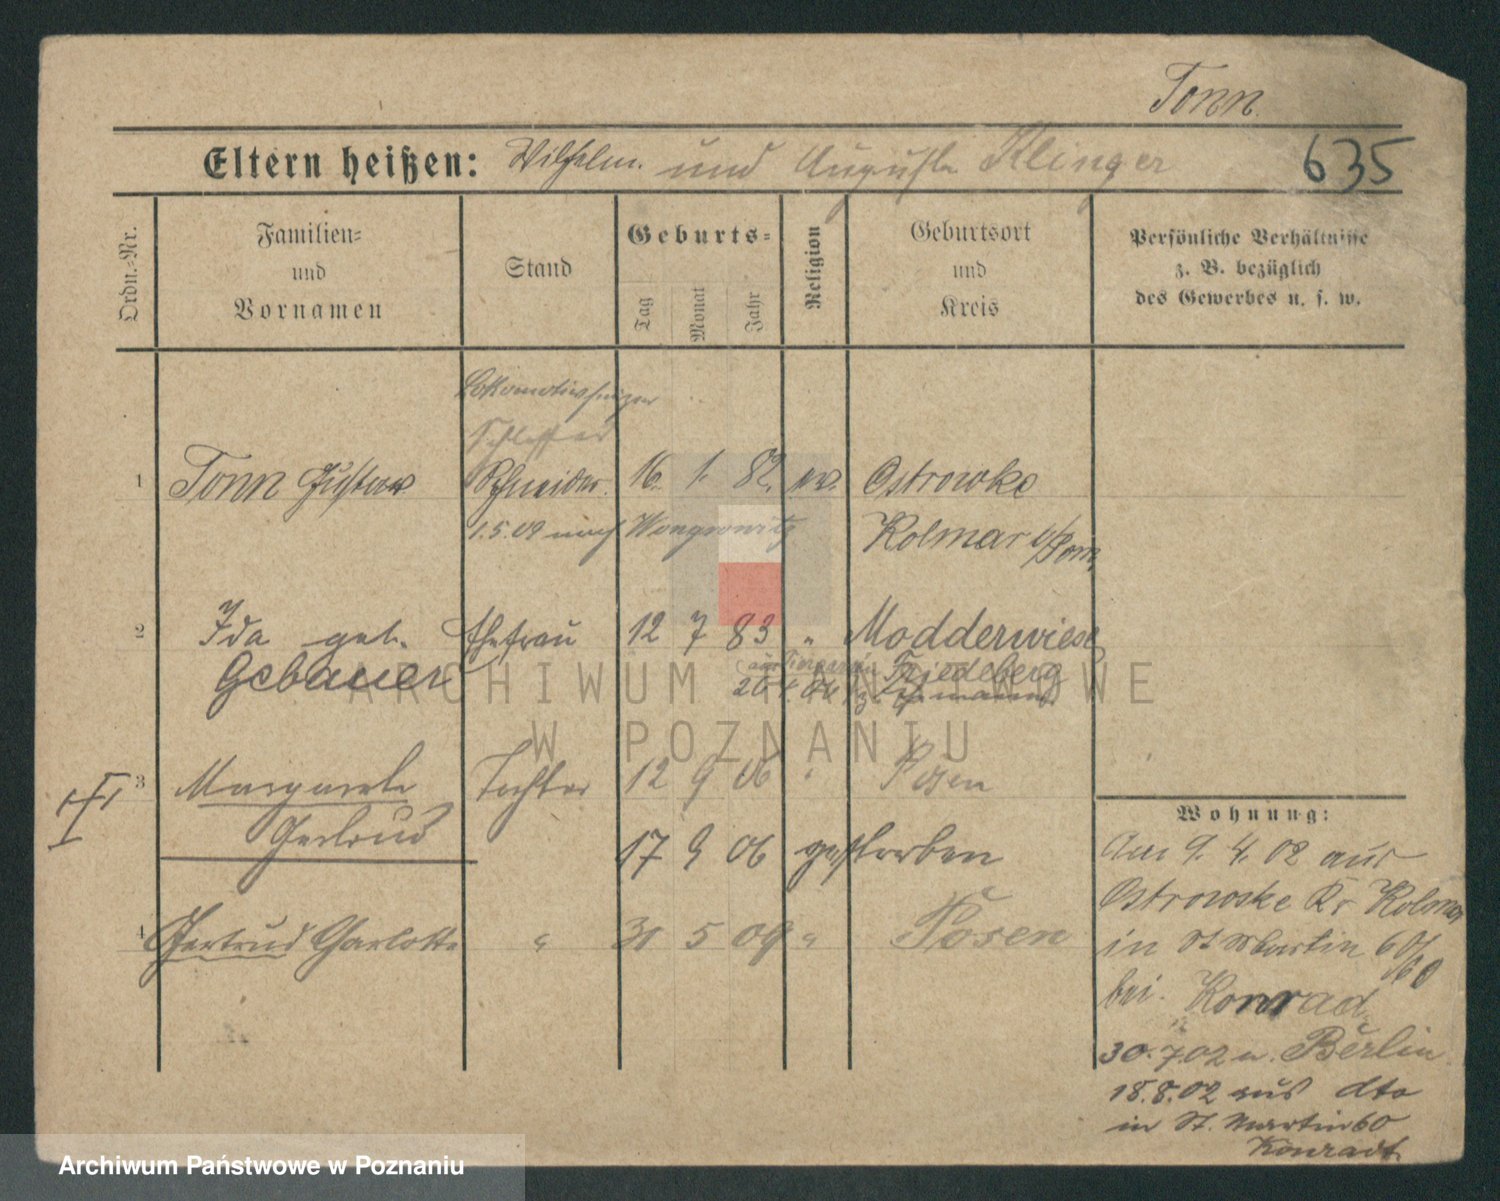 Tonn
Eltern heißen: Wilhelm und Auguste Klinger
635
Ordn.-Nr.
Familien-
und
Vornamen
Stand
Geburts-
Tag
Monat
Jahr
Religion
Geburtsort
und
Kreis
Persönliche Verhältnisse
z. B. bezüglich
des Gewerbes u. s. w.
Lokomotivheizer
Schlosser
1 Tonn Gustav Schneider. 16. 1. 82. ev. Ostrowke
1.5.09 nach Wongrowitz Kolmar i/Pom,
2 Ida geb. Ehefrau 12 7 83 " Modderwiese
Gebauer Friedeberg
aus
3 Margarete Tochter 12 9 06 " Posen
Gertrud
17 9 06 gestorben
4 Gertrud Charlotte " 30 5 09 " Posen
Wohnung:
Am 9. 4. 02 aus
Ostrowske Kr Kolmar
in St Martin 60/60
bei Konrad
30.7.02 n. Berlin.
18.8.02 aus dto
in St. Martin 60
Konradt.
ARCHIWUM PAŃSTWOWE
W POZNANIU
Archiwum Państwowe w Poznaniu